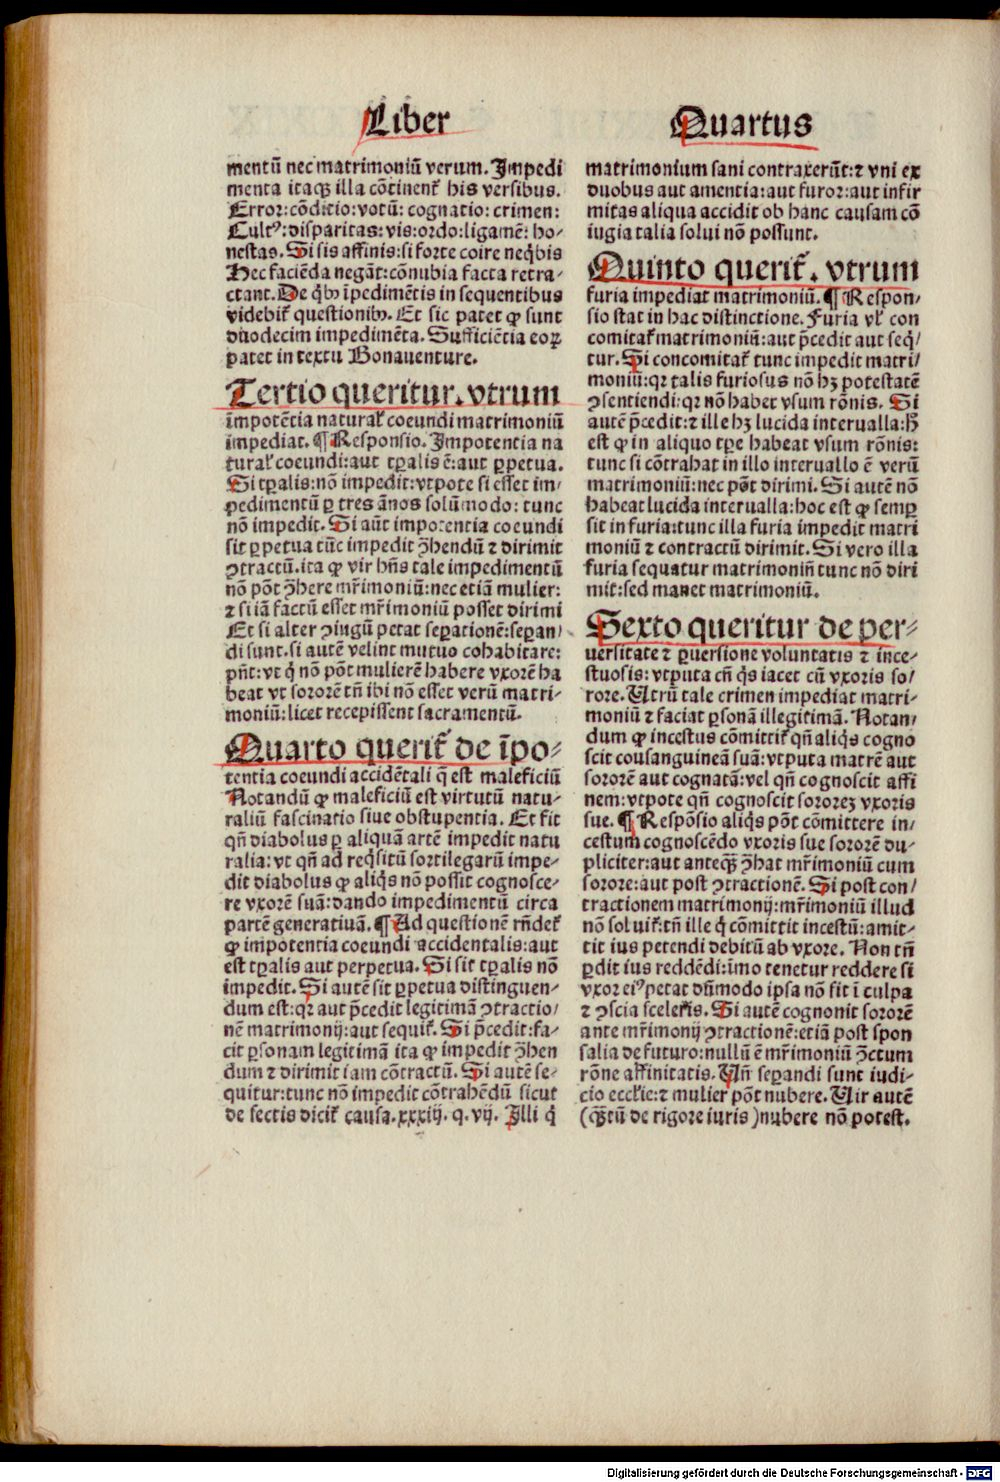 Liber Quartus
mentū nec matrimoniū verum. Impedi
menta itaqꝫ illa cōtinent᷑ his versibus.
Error: cōditio: votū: cognatio: crimen:
Cultꝰ: disparitas: vis: ordo: ligamē: ho-
nestas. Si sis affinis: si forte coire neq̄bis
Hec faciēda negāt: cōnubia facta retra-
ctant. De q̄bꝰ īpedimētis in sequentibus
videbit᷑ questionibꝰ. Et sic patet ꝙ sunt
duodecim impedimēta. Sufficiētia eoꝝ
patet in textu Bonauenture.
Tertio queritur. vtrum
impotētia natural᷑ coeundi matrimoniū
impediat. ¶ Responsio. Impotentia na
tural᷑ coeundi: aut tꝑalis ē: aut ꝑpetua.
Si tꝑalis: nō impedit: vtpote si esset im-
pedimentū ꝑ tres ānos solūmodo: tunc
nō impedit. Si aūt impotentia coeundi
sit ꝑpetua tūc impedit ꝯ̄hendū ⁊ dirimit
ꝯtractū. ita ꝙ vir hn̄s tale impedimentū
nō pōt ꝯ̄here mr̄imoniū: nec etiā mulier:
⁊ si iā factū esset mr̄imoniū posset dirimi
Et si alter ꝯiugū petat seꝑationē: seꝑan-
di sunt. si autē velint mutuo cohabitare:
pn̄t: vt q̄ nō pōt mulierē habere vxorē ha
beat vt sororē tn̄ ibi nō esset verū matri-
moniū: licet recepissent sacramentū.
Quarto querit᷑ de īpo-
tentia coeundi accidētali q̄ est maleficiū
Notandū ꝙ maleficiū est virtutū natu-
raliū fascinatio siue obstupentia. Et fit
qn̄ diabolus ꝑ aliquā artē impedit natu
ralia: vt qn̄ ad req̄sitū sortilegarū impe-
dit diabolus ꝙ aliq̄s nō possit cognosce-
re vxorē suā: dando impedimentū circa
partē generatiuā. ¶ Ad questionē rn̄det᷑
ꝙ impotentia coeundi accidentalis: aut
est tꝑalis aut perpetua. Si sit tꝑalis nō
impedit. Si autē sit ꝑpetua distinguen-
dum est: qꝛ aut p̄cedit legitimā ꝯtractio-
nē matrimonij: aut sequit᷑. Si p̄cedit: fa-
cit ꝑsonam legitimā ita ꝙ impedit ꝯ̄hen
dum ⁊ dirimit iam cōtractū. Si autē se-
quitur: tunc nō impedit cōtrahēdū sicut
de sectis dicit᷑ causa. xxxiij. q. vij. Illi q̄
matrimonium sani contraxerūt: ⁊ vni ex
duobus aut amentia: aut furor: aut infir
mitas aliqua accidit ob hanc causam cō
iugia talia solui nō possunt.
Quinto querit᷑. vtrum
furia impediat matrimoniū. ¶ Respon-
sio stat in hac distinctione. Furia vl᷑ con
comitat᷑ matrimoniū: aut p̄cedit aut seq̄-
tur. Si concomitat᷑ tunc impedit matri-
moniū: qꝛ talis furiosus nō hꝫ potestatē
ꝯsentiendi: qꝛ nō habet vsum rōnis. Si
autē p̄cedit: ⁊ ille hꝫ lucida interualla: h̄
est ꝙ in aliquo tꝑe habeat vsum rōnis:
tunc si cōtrahat in illo interuallo ē verū
matrimoniū: nec pōt dirimi. Si autē nō
habeat lucida interualla: hoc est ꝙ semꝑ
sit in furia: tunc illa furia impedit matri
moniū ⁊ contractū dirimit. Si vero illa
furia sequatur matrimoniū tunc nō diri
mit: sed manet matrimoniū.
Sexto queritur de per-
uersitate ⁊ ꝑuersione voluntatis ⁊ ince-
stuosis: vtputa cū q̄s iacet cū vxoris so-
rore. Vtrū tale crimen impediat matri-
moniū ⁊ faciat ꝑsonā illegitimā. Notan-
dum ꝙ incestus cōmittit᷑ qn̄ aliq̄s cogno
scit cousanguineā suā: vtputa matrē aut
sororē aut cognatā: vel qn̄ cognoscit affi
nem: vtpote qn̄ cognoscit sororeꝫ vxoris
sue. ¶ Respōsio aliq̄s pōt cōmittere in-
cestum cognoscēdo vxoris sue sororē du-
pliciter: aut anteq̄ꝫ ꝯ̄hat mr̄imoniū cum
sorore: aut post ꝯtractionē. Si post con-
tractionem matrimonij: mr̄imoniū illud
nō soluit᷑: tn̄ ille q̄ cōmittit incestū: amit-
tit ius petendi debitū ab vxore. Non tn̄
ꝑdit ius reddēdi: īmo tenetur reddere si
vxor eiꝰ petat dūmodo ipsa nō sit ī culpa
⁊ ꝯscia sceleris. Si autē cognouit sororē
ante mr̄imonij ꝯtractionē: etiā post spon
salia de futuro: nullū ē mr̄imoniū ꝯ̄ctum
rōne affinitatis. Vn̄ seꝑandi sunt iudi-
cio eccl᷑ie: ⁊ mulier pōt nubere. Vir autē
(q̄ꝫtū de rigore iuris) nubere nō potest.
Digitalisierung gefördert durch die Deutsche Forschungsgemeinschaft - DFG